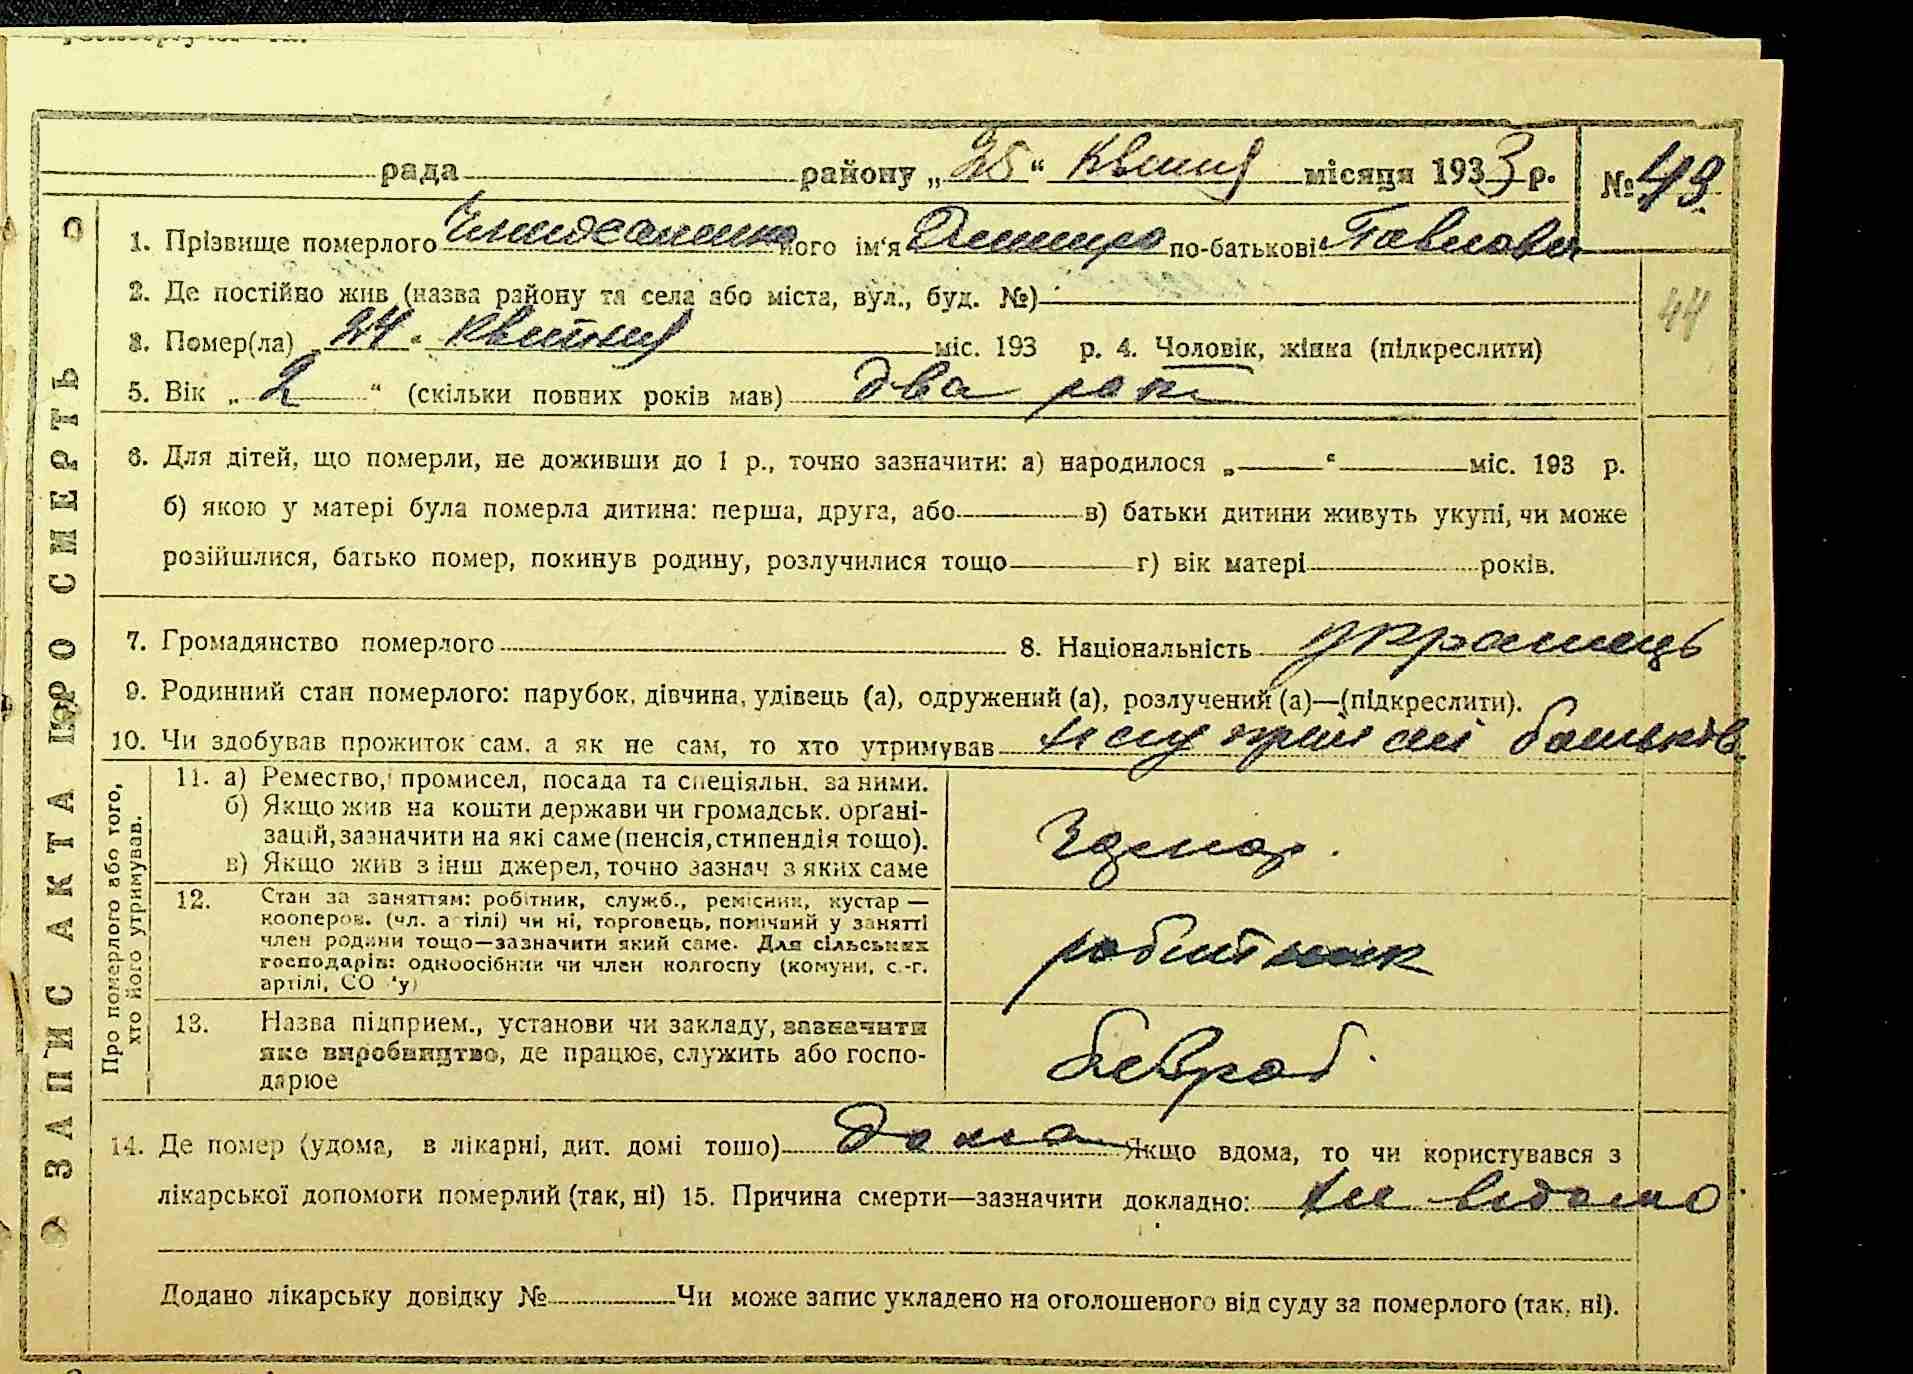 рада района „25“ Квітня місяця 1933 р. № 49.
1. Прізвище померлого його ім'я Дмитро по-батькові Павлович
2. Де постійно жив (назва району та села або міста, вул., буд. №)
3. Помер(ла) „24“ квітня міс. 193 р. 4. Чоловік, жінка (підкреслити)
44
5. Вік „2“ (скільки повних років мав) два роки
6. Для дітей, що померли, не доживши до 1 р., точно зазначити: а) народилося „ “ міс. 193 р.
б) якою у матері була померла дитина: перша, друга, або в) батьки дитини живуть укупі, чи може
розійшлися, батько помер, покинув родину, розлучилися тощо г) вік матері років.
7. Громадянство померлого 8. Національність українець
9. Родинний стан померлого: парубок, дівчина, удівець (а), одружений (а), розлучений (а)—(підкреслити).
10. Чи здобував прожиток сам, а як не сам, то хто утримував на утриманні батьків
ЗАПИС АКТА ПРО СМЕРТЬ
Про померлого або того, хто його утримував.
11. а) Ремество, промисел, посада та спеціяльн. за ними.
б) Якщо жив на кошти держави чи громадськ. органі-
зацій, зазначити на які саме (пенсія, стипендія тощо).
в) Якщо жив з інш джерел, точно зазнач з яких саме
12. Стан за заняттям: робітник, служб., ремісник, кустар —
кооперов. (чл. артілі) чи ні, торговець, помічний у занятті
член родини тощо—зазначити який саме. Для сільських
господарів: одноосібник чи член колгоспу (комуни, с.-г.
артілі, СО 'у)
робітник
13. Назва підприєм., установи чи закладу, зазначити
яке виробництво, де працює, служить або госпо-
дарює
14. Де помер (удома, в лікарні, дит. домі тощо) дома Якщо вдома, то чи користувався з
лікарської допомоги померлий (так, ні) 15. Причина смерти—зазначити докладно: не відомо
Додано лікарську довідку № Чи може запис укладено на оголошеного від суду за померлого (так, ні).